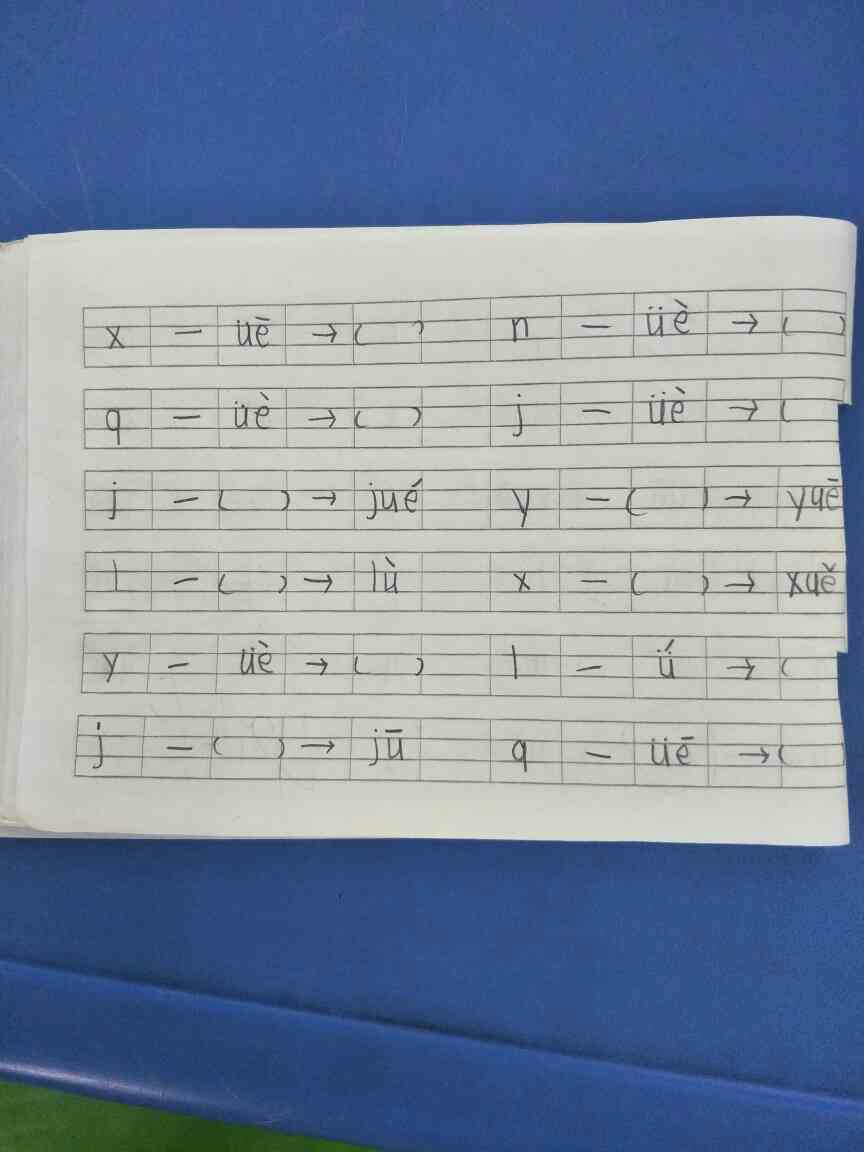 x — üē → ( ) n — üè → ( )
q — üè → ( ) j — üè → (
j — ( ) → jué y — ( ) → yuē
l — ( ) → lù x — ( ) → xuě
y — üè → ( ) l — ǘ → (
j — ( ) → jū q — üē → ( )